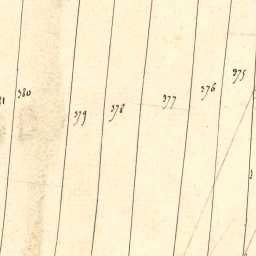 380
379
378
377
376
375